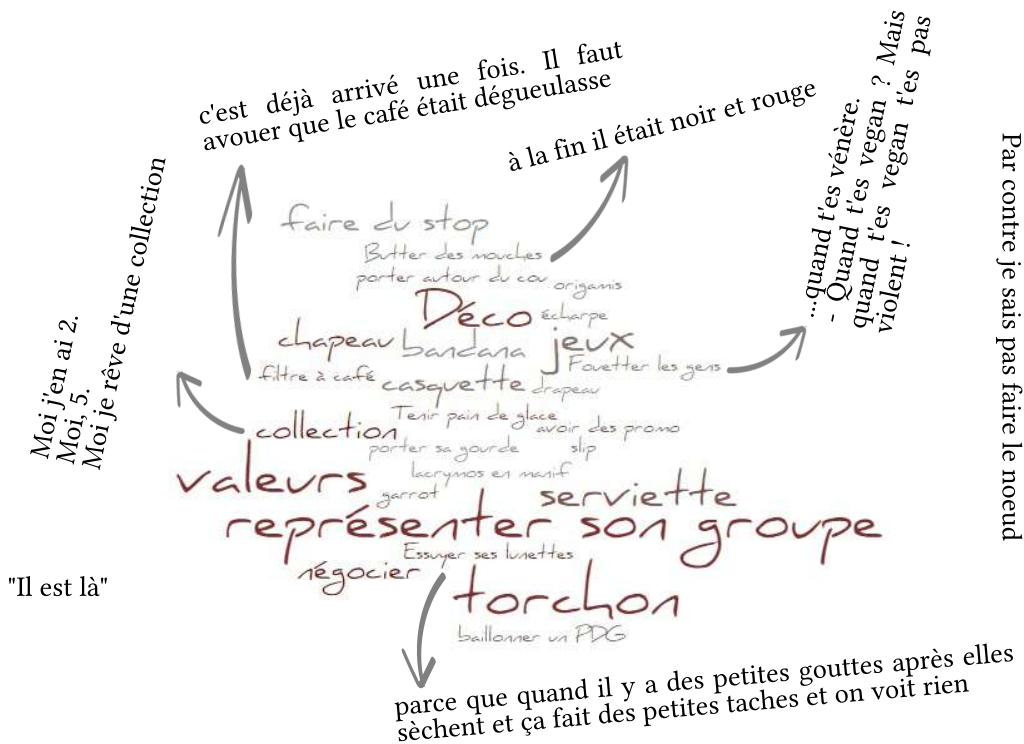 c'est déjà arrivé une fois. Il faut
avouer que le café était dégueulasse
à la fin il était noir et rouge
...quand t'es vénère.
- Quand t'es vegan ? Mais
quand t'es vegan t'es pas
violent !
Par contre je sais pas faire le noeud
Moi j'en ai 2.
Moi, 5.
Moi je rêve d'une collection
faire du stop
Butter des mouches
porter autour du cou
origamis
Déco
écharpe
chapeau
bandana
jeux
Fouetter les gens
filtre à café
casquette
drapeau
Tenir pain de glace
collection
avoir des promo
porter sa gourde
slip
lacrymos en manif
valeurs
garrot
serviette
représenter son groupe
Essuyer ses lunettes
négocier
torchon
baillonner un PDG
"Il est là"
parce que quand il y a des petites gouttes après elles
sèchent et ça fait des petites taches et on voit rien